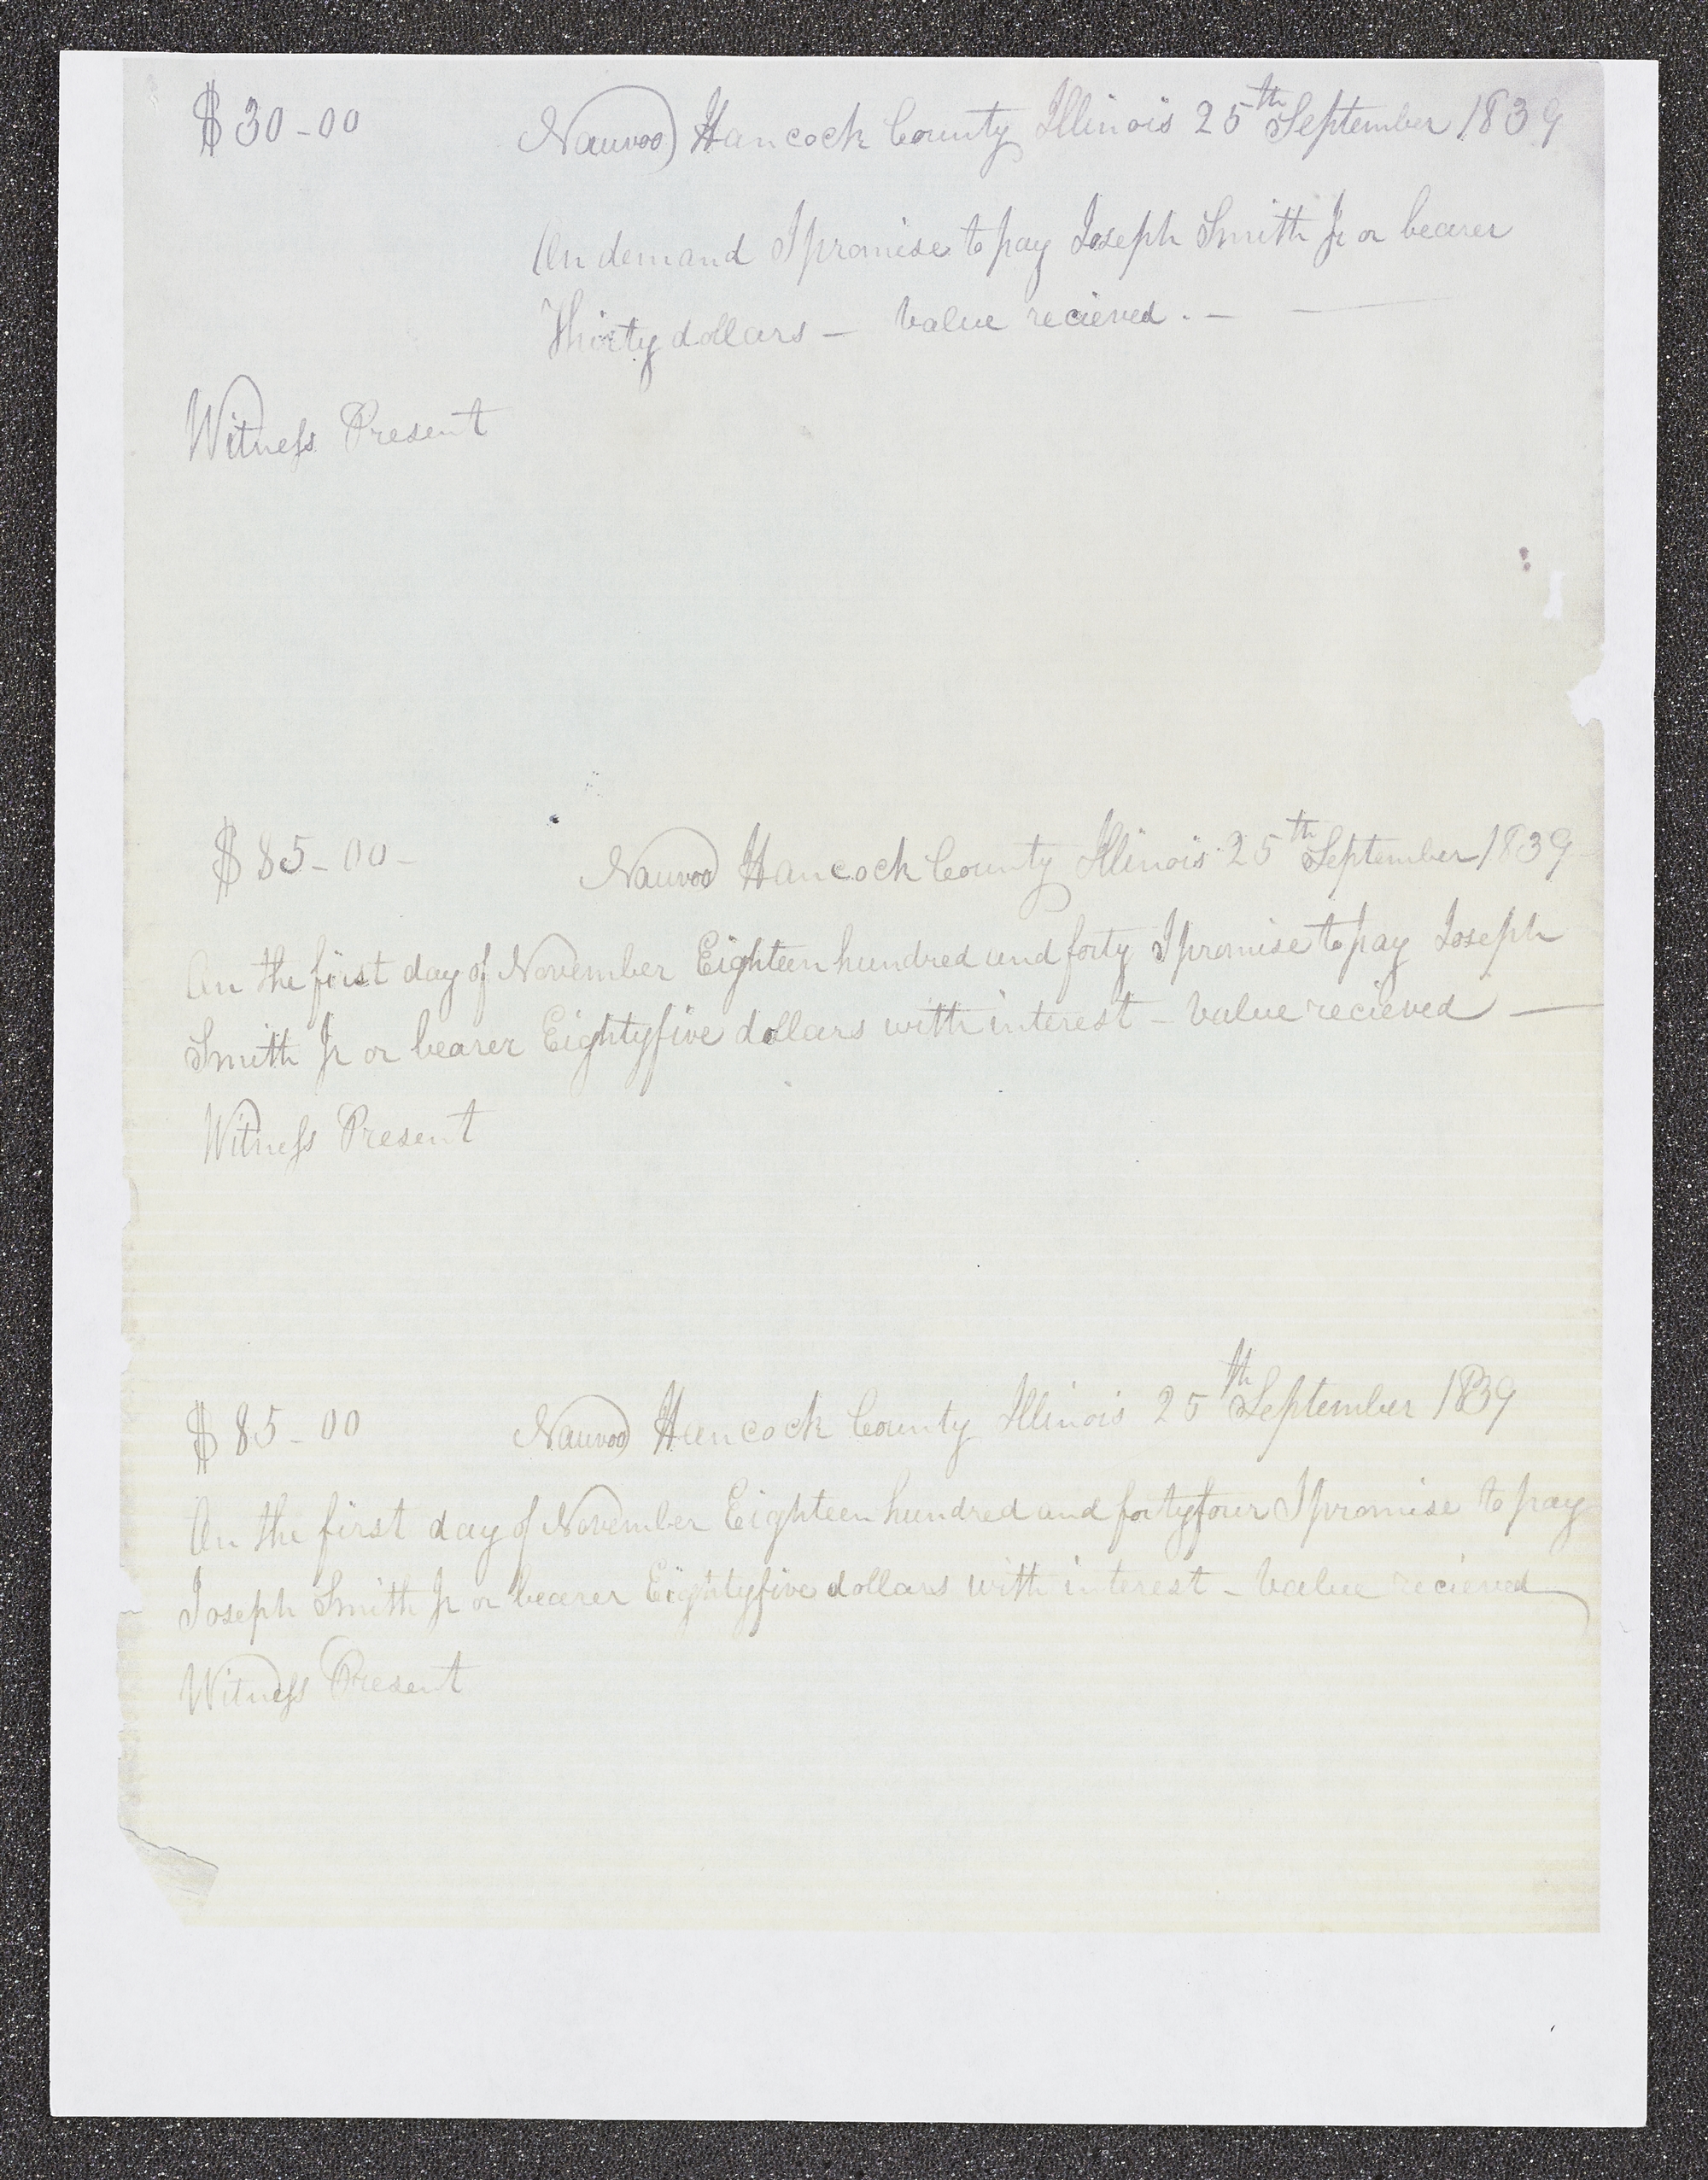 $30-00 Nauvoo Hancock County Illinois 25th September 1839
On demand I promise to pay Joseph Smith Jr or bearer
Thirty dollars – Value recieved. – —
Witness Present
$85-00- Nauvoo Hancock County Illinois 25th September 1839
On the first day of November Eighteen hundred and forty I promise to pay Joseph
Smith Jr or bearer Eightyfive dollars with interest – Value recieved —
Witness Present
$85-00 Nauvoo Hancock County Illinois 25th September 1839
On the first day of November Eighteen hundred and fortyfour I promise to pay
Joseph Smith Jr or bearer Eightyfive dollars with interest – Value recieved
Witness Present